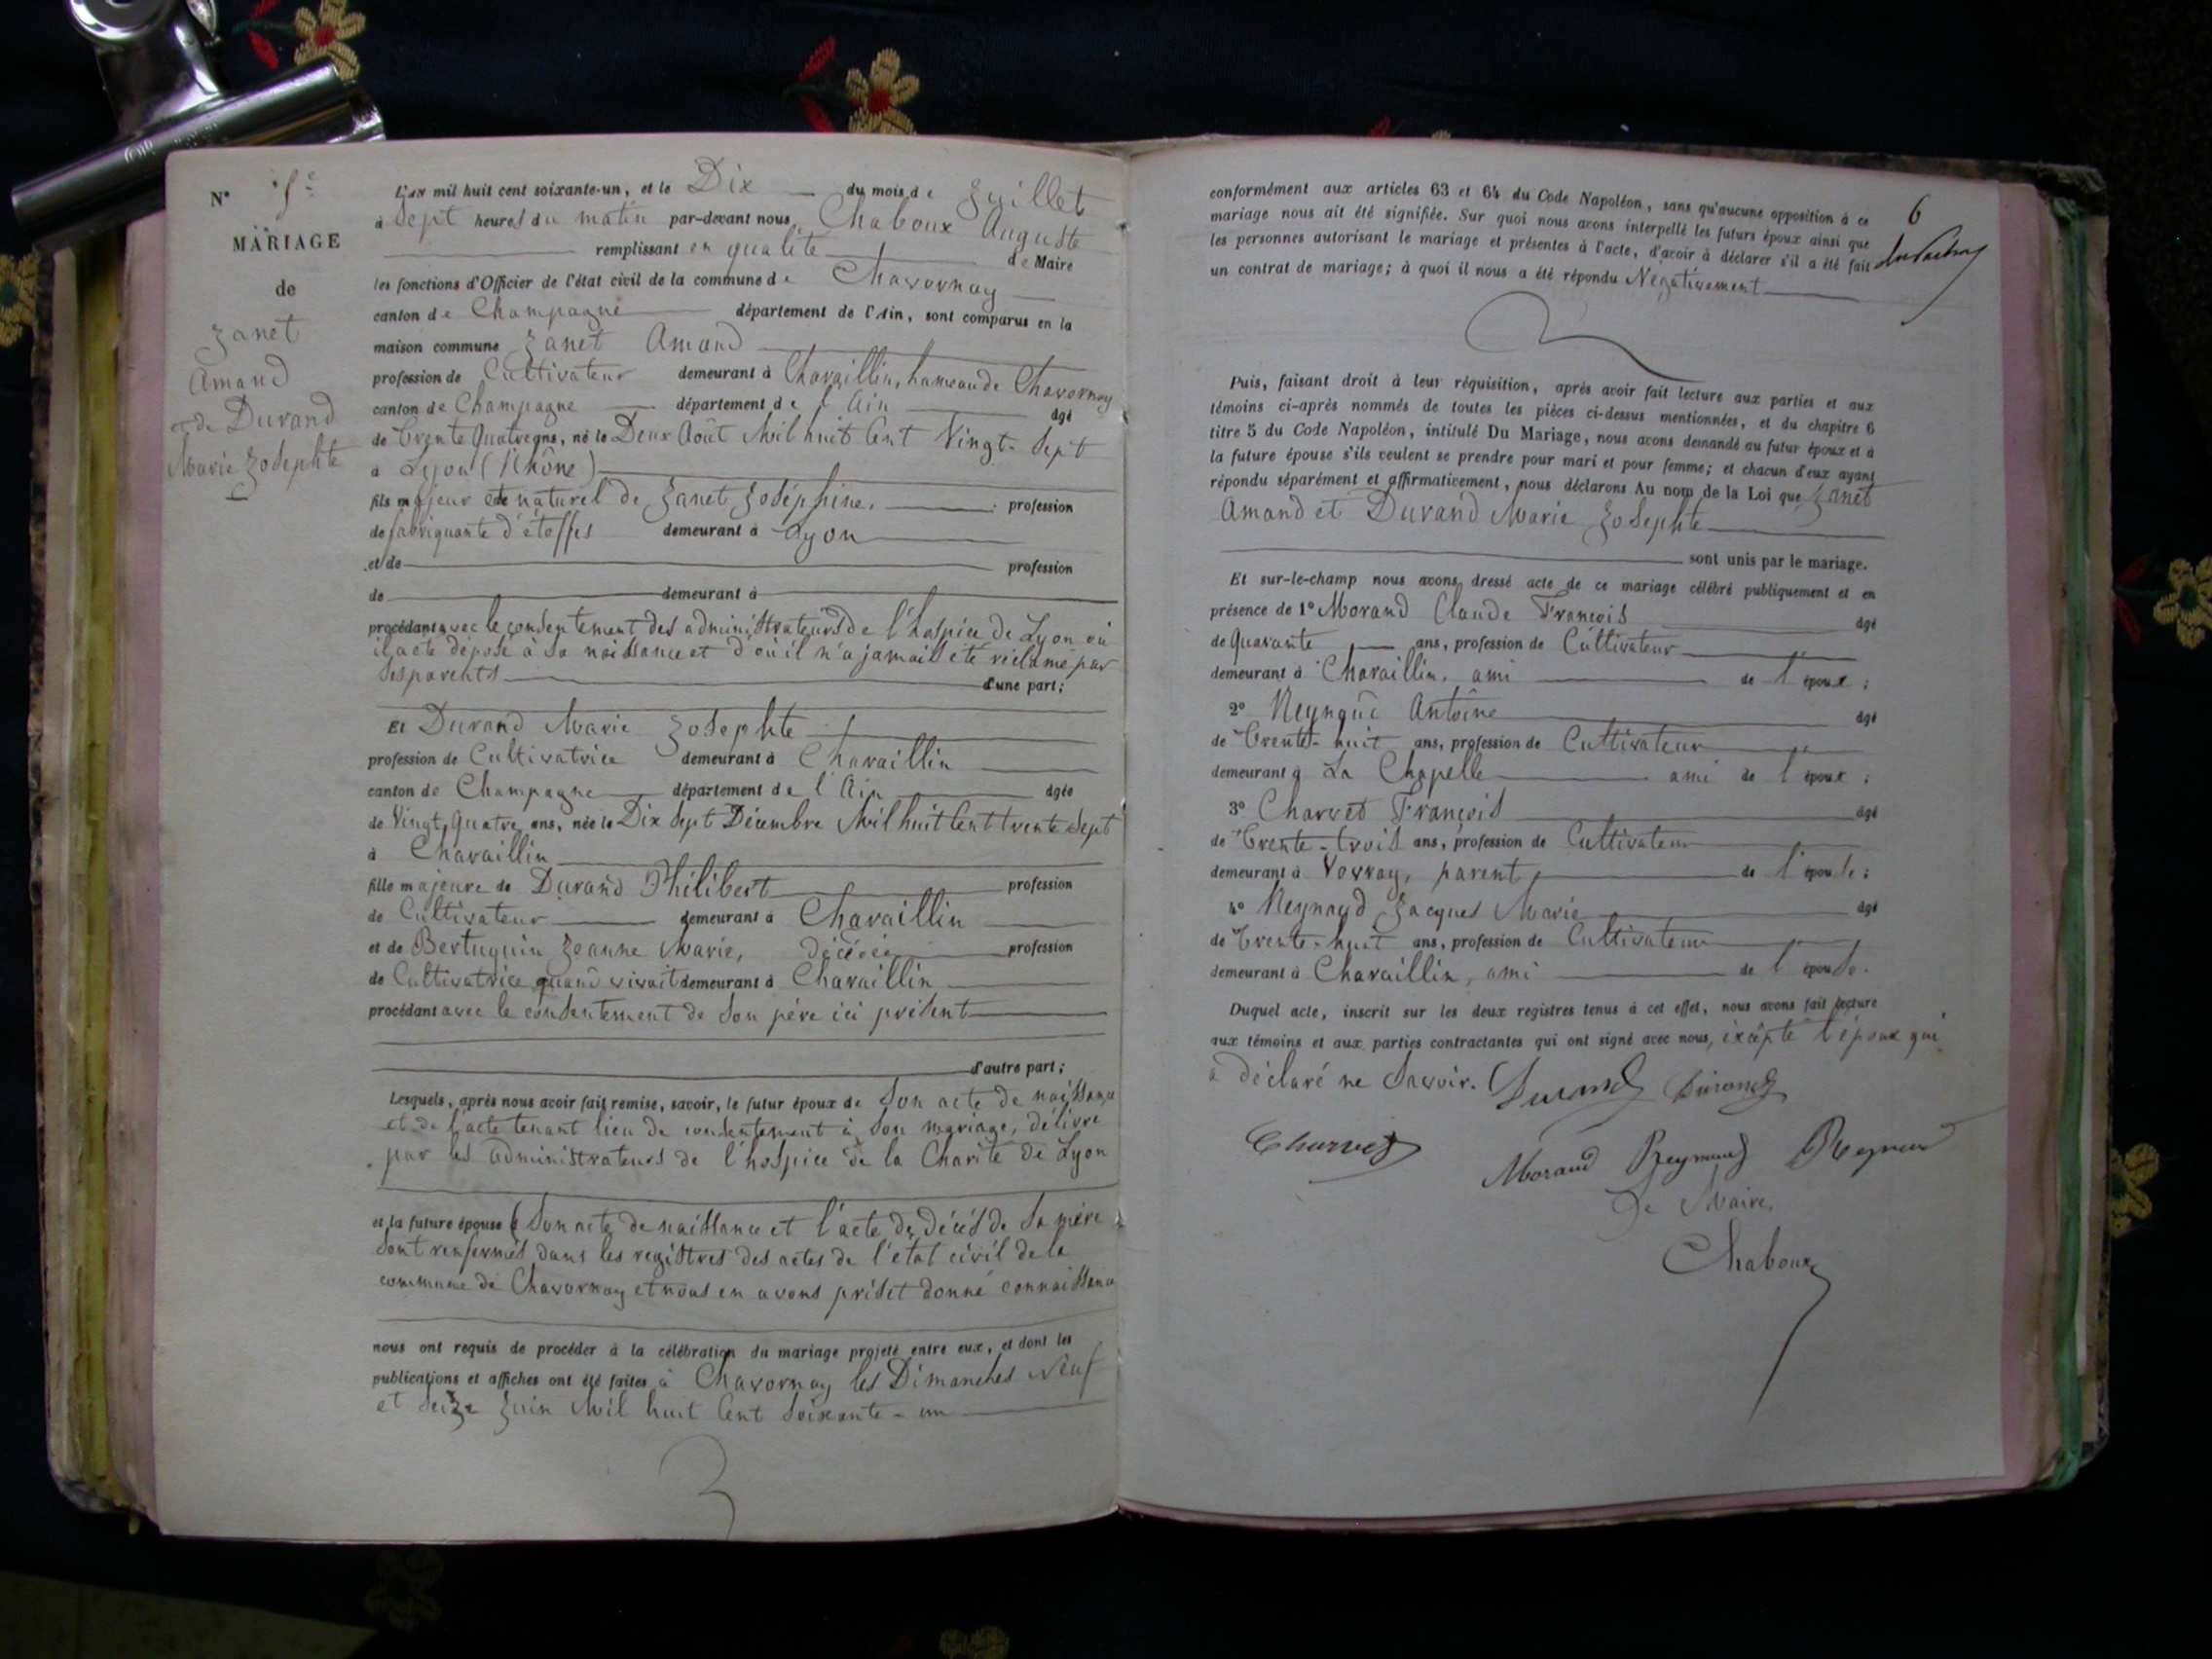 N° 5e
MARIAGE
de
Janet
Amand
et de Durand
Marie Josephte
L'an mil huit cent soixante-un, et le Dix du mois de Juillet
à Sept heures du matin par-devant nous, Chaboux Auguste
remplissant en qualité de Maire
les fonctions d'Officier de l'état civil de la commune de Chavornay
canton de Champagne département de l'Ain, sont comparus en la
maison commune Janet Amand
profession de Cultivateur demeurant à Charaillin, hameau de Chavornay
canton de Champagne département de l'Ain âgé
de Trente Quatre ans, né le Deux Août Mil huit Cent Vingt-Sept
à Lyon (Rhône)
fils majeur et naturel de Janet Joséphine, profession
de fabriquante d'étoffes demeurant à Lyon
et de profession
de demeurant à
procédant avec le consentement des administrateurs de l'hospice de Lyon où
il a été déposé à sa naissance et d'où il n'a jamais été réclamé par
ses parents d'une part;
Et Durand Marie Josephte
profession de Cultivatrice demeurant à Charaillin
canton de Champagne département de l'Ain âgée
de Vingt Quatre ans, née le Dix Sept Décembre Mil huit Cent trente Sept
à Charaillin
fille majeure de Durand Philibert profession
de Cultivateur demeurant à Charaillin
et de Bertuquin Jeanne Marie, décédée profession
de Cultivatrice quand vivait demeurant à Charaillin
procédant avec le consentement de son père ici présent
d'autre part;
Lesquels, après nous avoir fait remise, savoir, le futur époux de Son acte de naissance
et de l'acte tenant lieu de consentement à son mariage, délivré
par les administrateurs de l'hospice de la Charité de Lyon
et la future épouse (Son acte de naissance et l'acte de décès de sa mère
sont renfermés dans les registres des actes de l'état civil de la
commune de Chavornay et nous en avons pris et donné connaissance
nous ont requis de procéder à la célébration du mariage projeté entre eux, et dont les
publications et affiches ont été faites à Chavornay les Dimanches Neuf
et Seize Juin Mil huit Cent Soixante-un
6
conformément aux articles 63 et 64 du Code Napoléon, sans qu'aucune opposition à ce
mariage nous ait été signifiée. Sur quoi nous avons interpellé les futurs époux ainsi que
les personnes autorisant le mariage et présentes à l'acte, d'avoir à déclarer s'il a été fait
un contrat de mariage; à quoi il nous a été répondu Négativement
Puis, faisant droit à leur réquisition, après avoir fait lecture aux parties et aux
témoins ci-après nommés de toutes les pièces ci-dessus mentionnées, et du chapitre 6
titre 5 du Code Napoléon, intitulé Du Mariage, nous avons demandé au futur époux et à
la future épouse s'ils veulent se prendre pour mari et pour femme; et chacun d'eux ayant
répondu séparément et affirmativement, nous déclarons Au nom de la Loi que Janet
Amand et Durand Marie Josephte
sont unis par le mariage.
Et sur-le-champ nous avons dressé acte de ce mariage célébré publiquement et en
présence de 1° Morand Claude François âgé
de Quarante ans, profession de Cultivateur
demeurant à Charaillin, ami de l'époux;
2° Reynaud Antoine âgé
de Trente-huit ans, profession de Cultivateur
demeurant à La Chapelle ami de l'époux;
3° Charvet François âgé
de Trente-trois ans, profession de Cultivateur
demeurant à Vovray, parent de l'épouse;
4° Reynaud Jacques Marie âgé
de Trente-huit ans, profession de Cultivateur
demeurant à Charaillin, ami de l'épouse.
Duquel acte, inscrit sur les deux registres tenus à cet effet, nous avons fait lecture
aux témoins et aux parties contractantes qui ont signé avec nous, excepté l'époux qui
a déclaré ne Savoir. Durand Durand
Charvet Morand Reynaud Reynaud
Le Maire,
Chaboux